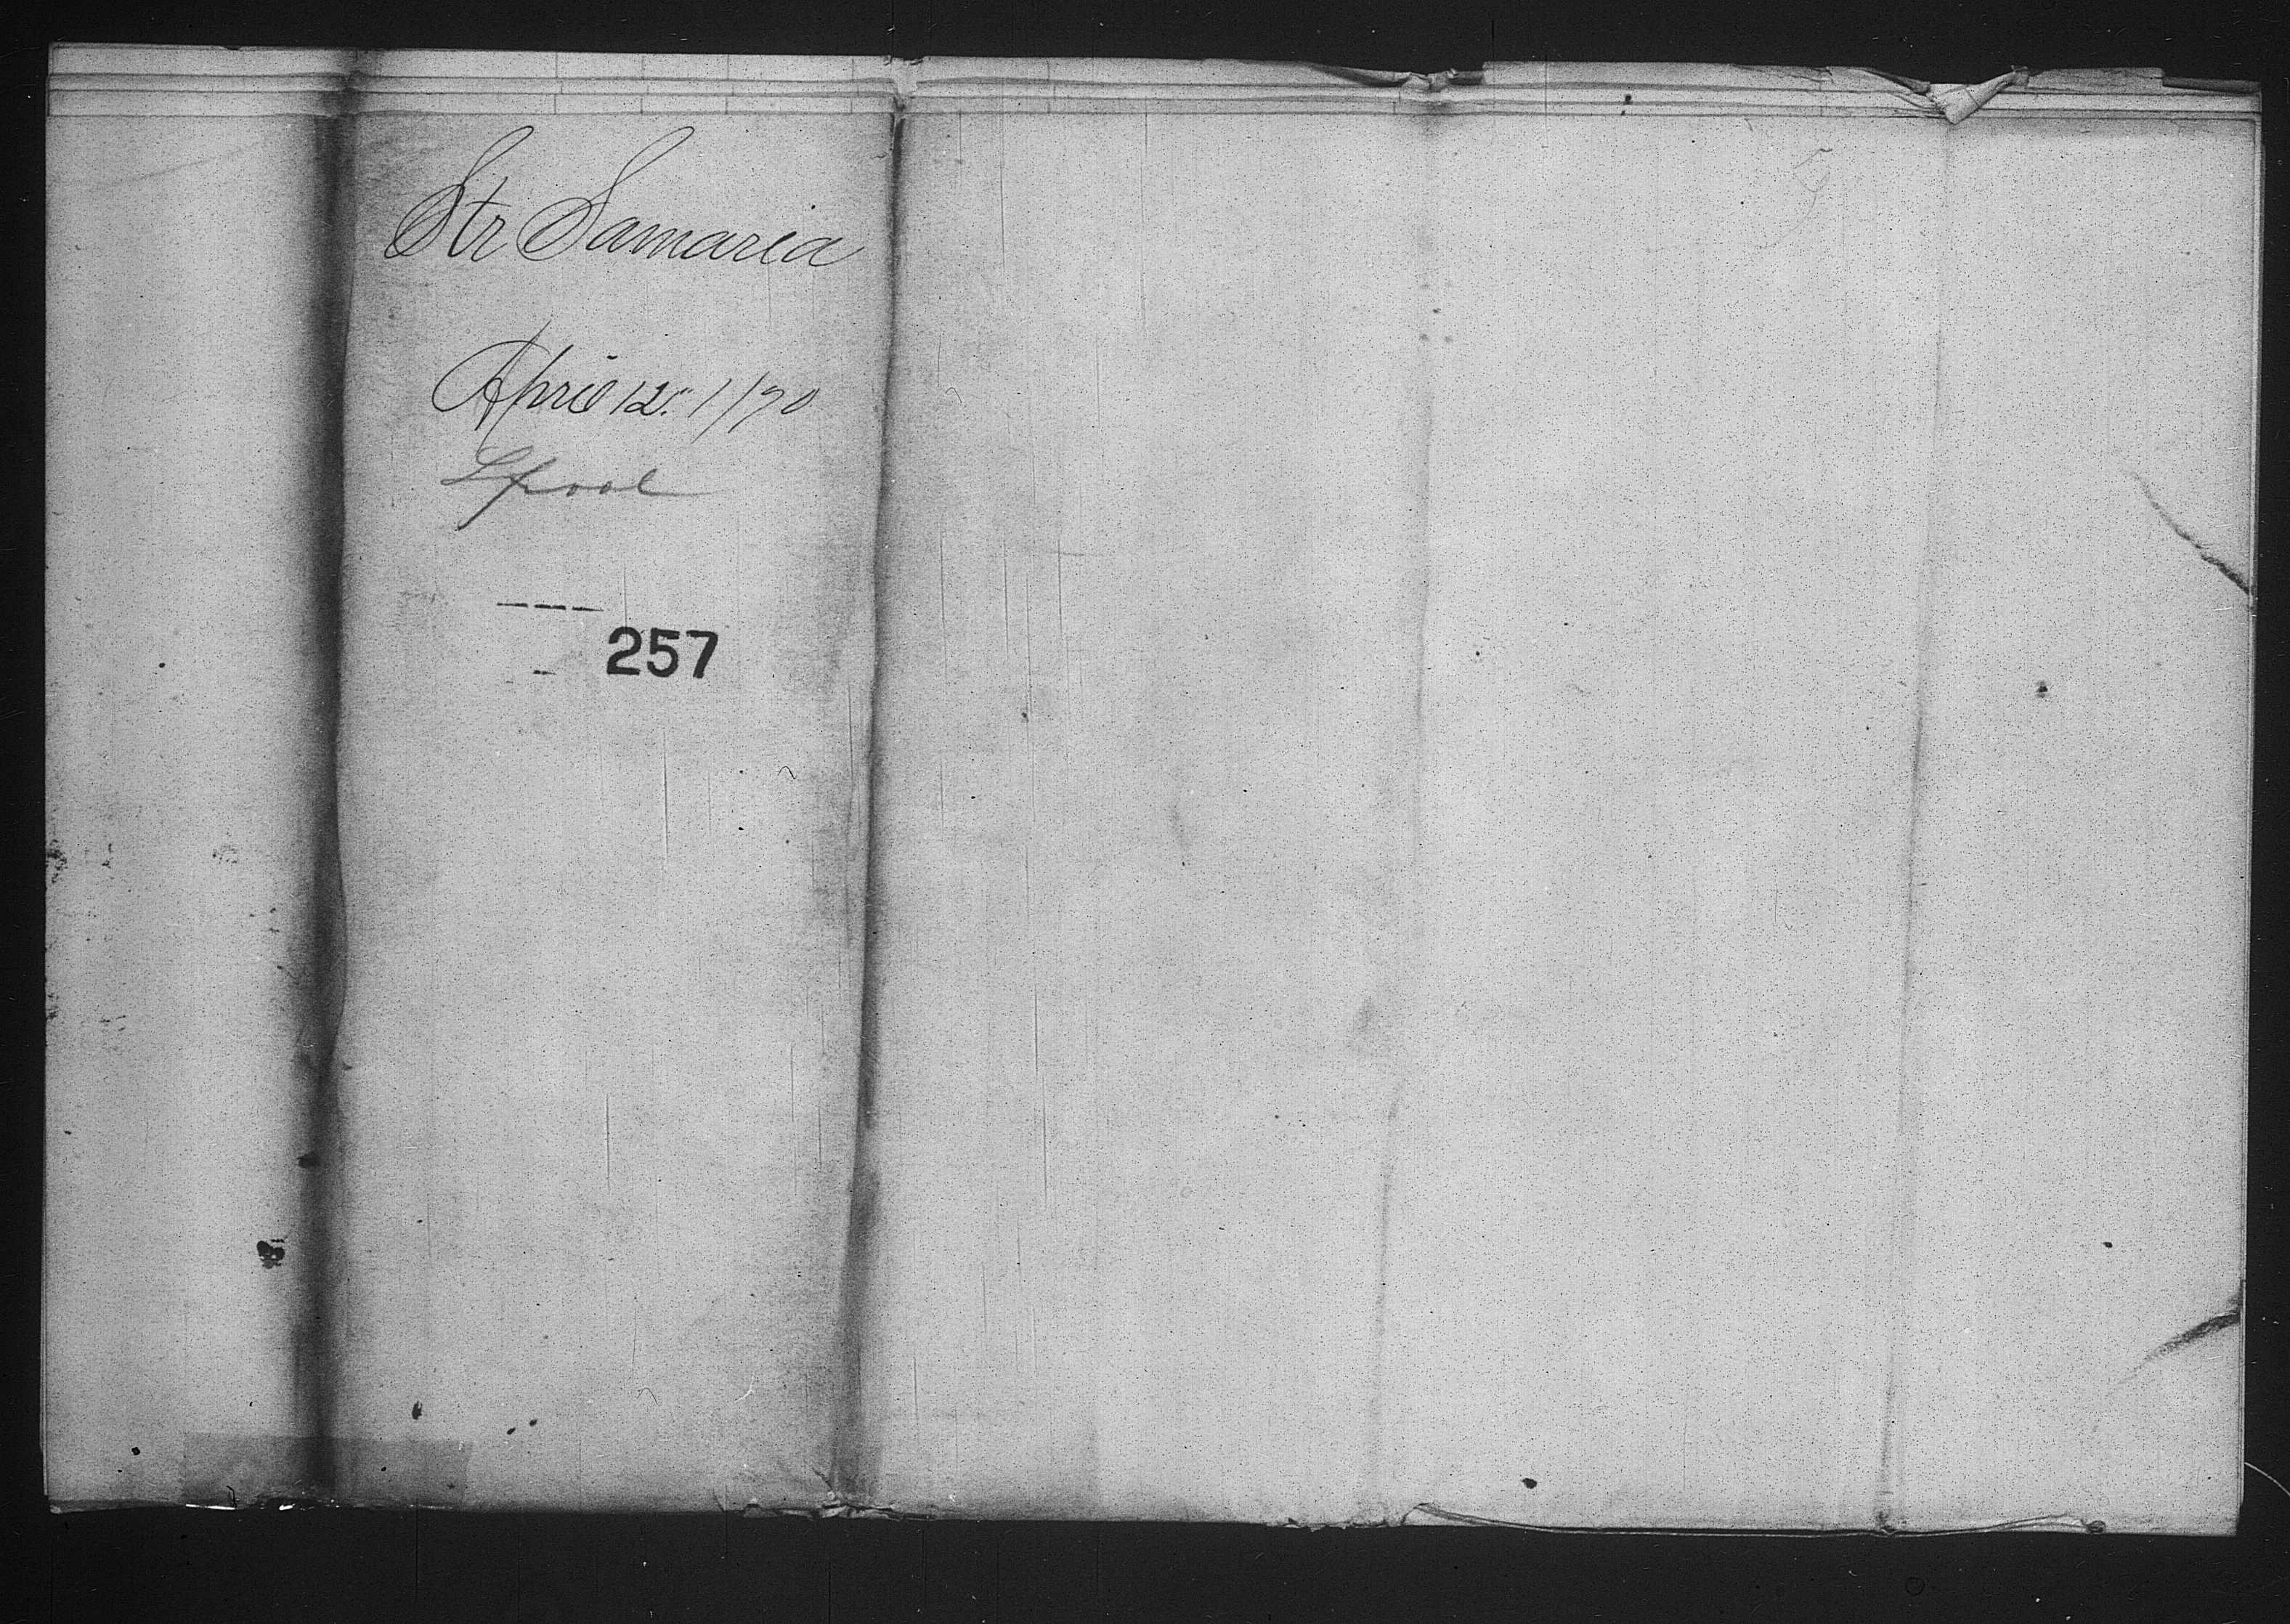 Str Samaria
April 12" 1/70
Lpool
257